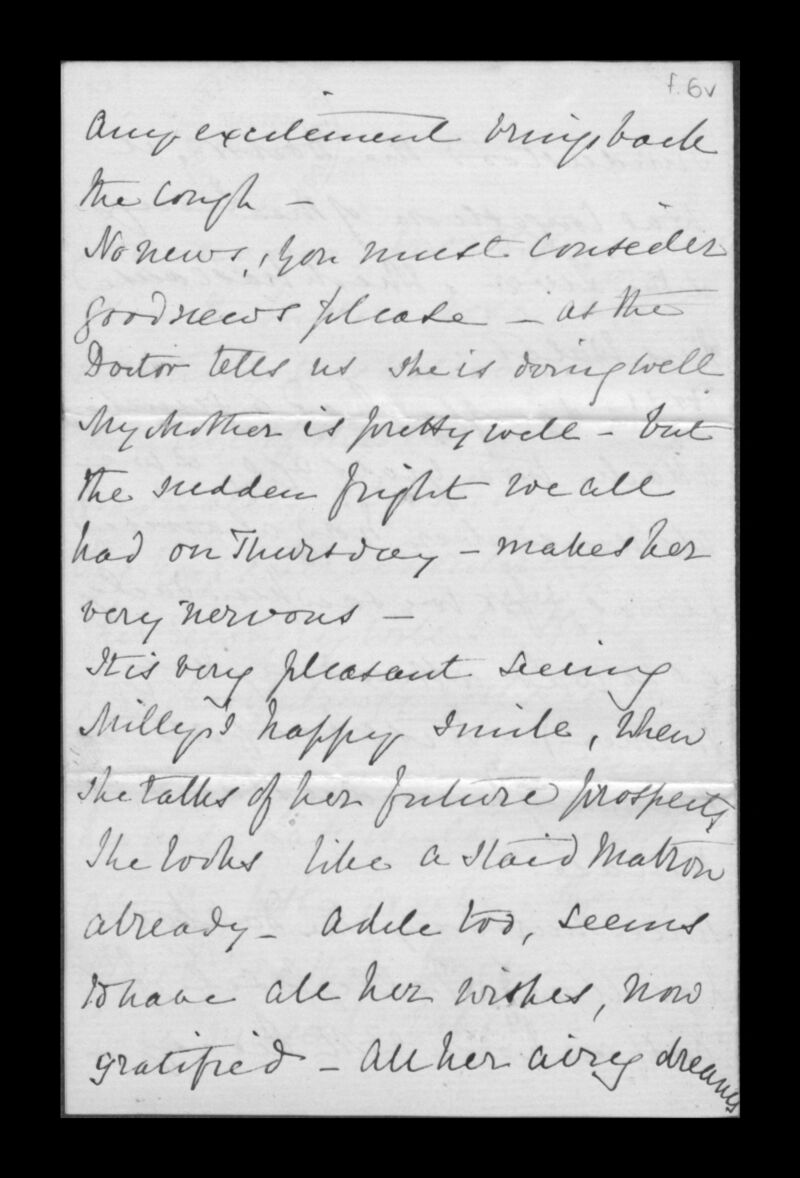 f. 6v
Any excitement brings back
the cough –
No news, you must consider
good news please – as the
Doctor tells us she is doing well
My Mother is pretty well – but
the sudden fright we all
had on Thursday – makes her
very nervous –
It is very pleasant seeing
Milly's happy smile, when
she talks of her future prospects
She looks like a staid Matron
already – Adele too, seems
to have all her wishes, now
gratified – All her airey dreams